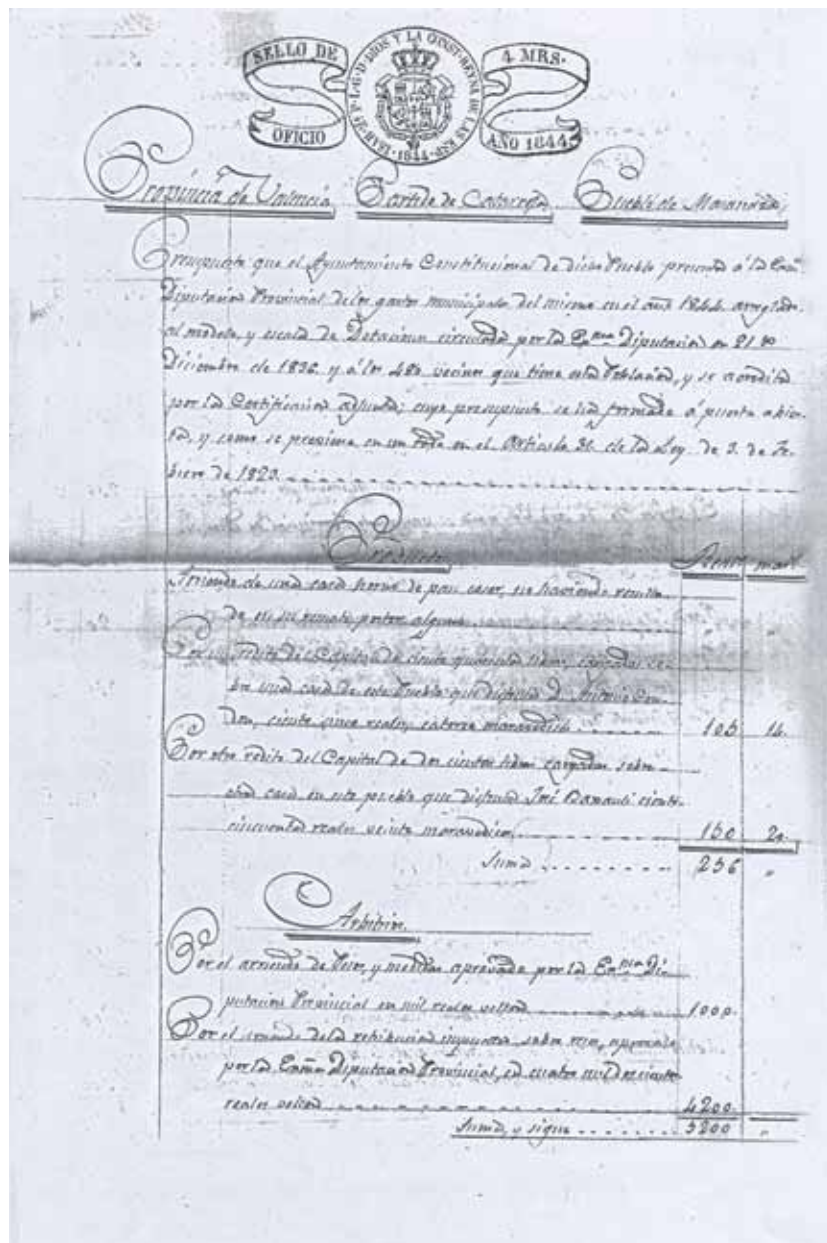 SELLO DE OFICIO
ISAB. 2ª P. L. G. D. DIOS Y LA CONST. REYNA DE LAS ESP.
1844
4 MRS.
AÑO 1844
Provincia de Valencia Partido de Catarroja Pueblo de
Presupuesto que el Ayuntamiento Constitucional de dicho Pueblo presenta á la Exmª
Diputacion Provincial de los gastos municipales del mismo en el año 1844 arreglado
al modelo, y escala de Dotacion circulada por la Exma Diputacion en 21 de
Diciembre de 1836 y á los vecinos que tiene esta Poblacion, y se acredita
por la Certificacion adjunta; cuyo presupuesto se ha formado á puerta abier-
ta, y como se previene en un todo en el Articulo de la Ley de 3 de Fe-
brero de 1823
Productos Reales mars
Arriendo de una casa horno de pan cocer, no haviendo
de en su remate postor alguno
Por un redito del Capital de ciento quarenta libras, cargadas so-
bre una casa de este Pueblo que disfruta D. Antonio
ciento cinco reales, catorce maravedises 105 14.
Por otro redito del Capital de dos cientas libras cargadas sobre
otra casa en este pueblo que disfruta José ciento
cincuenta reales veinte maravedises 150 20.
Suma 256 "
Arbitrios
Por el arriendo de Pesos, y medidas aprovado por la Exma Di-
putacion Provincial en mil reales vellon 1000.
Por el arriendo de la retribucion impuesta sobre aprovado
por la Exma Diputacion Provincial, en cuatro mil docientos
reales vellon 4200.
Suma, y sigue 5200 "